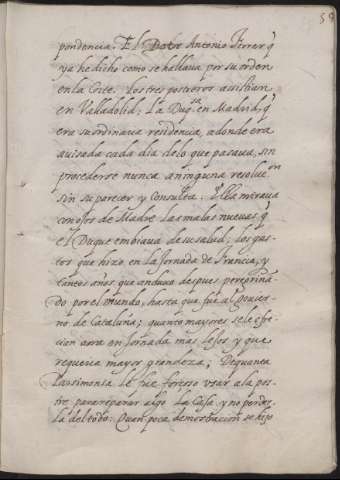 58
pondencia. El Dotor Antonio Ferrer q̃
ya he dicho como se hallaua por su orden
en la Corte. Los tres postreros asistian
en Valladolid; La Duq.sa en Madrid, q̃
era su ordinaua residencia, adonde era
auisada cada dia de lo que pasaua, sin
procederse nunca a ninguna resoluc.on
sin su parecer y consulta. Ella miraua
con ojos de Madre las malas nueuas q̃
el Duque embiaua de su salud; los gas-
tos que hizo en la Jornada de Francia, y
tantos años que anduuo despues peregrinã
do por el mundo, hasta que fue al gouier-
no de Cataluña; quanto mayores se le ofre-
cian aora en Jornada mas lejos, y que
requeria mayor grandeza; De quanta
Parsimonia le fue forzoso vsar a la pos-
tre para reparar algo la Casa, y no perder-
la del todo: Quan poca demostracion se hizo